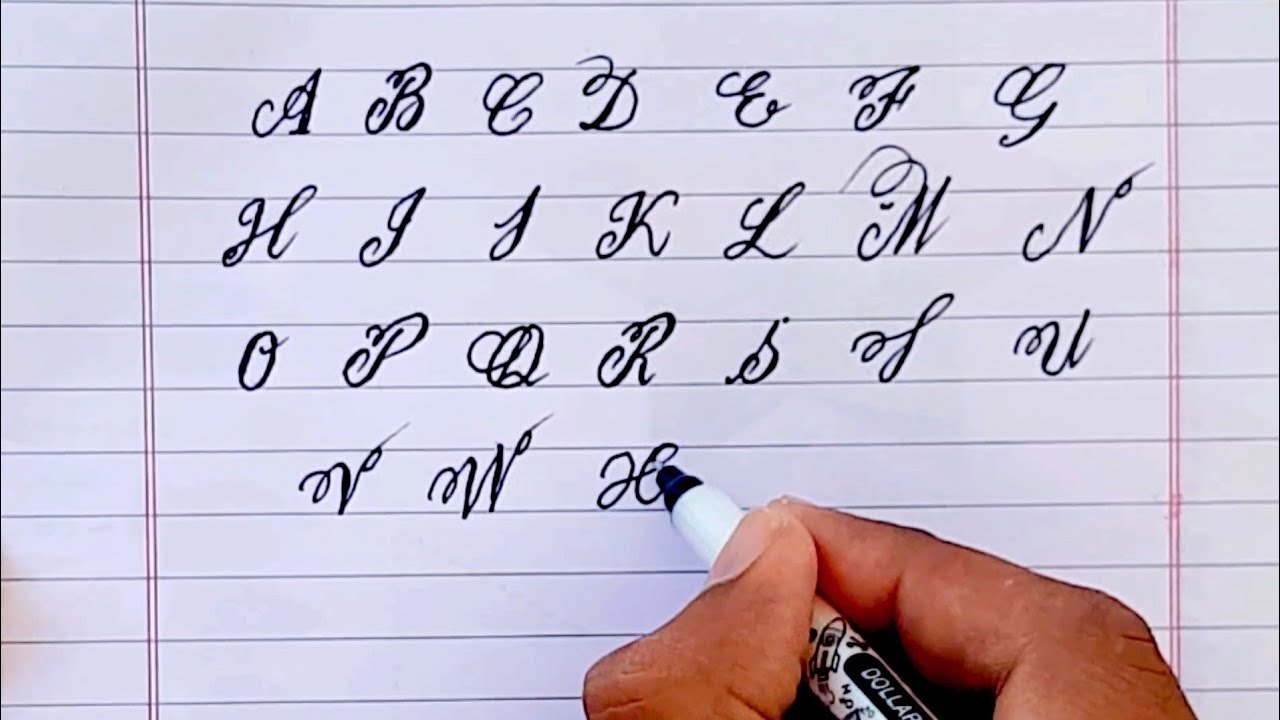 A B C D E F G
H I J K L M N
O P Q R S T U
V W X
DOLLAR